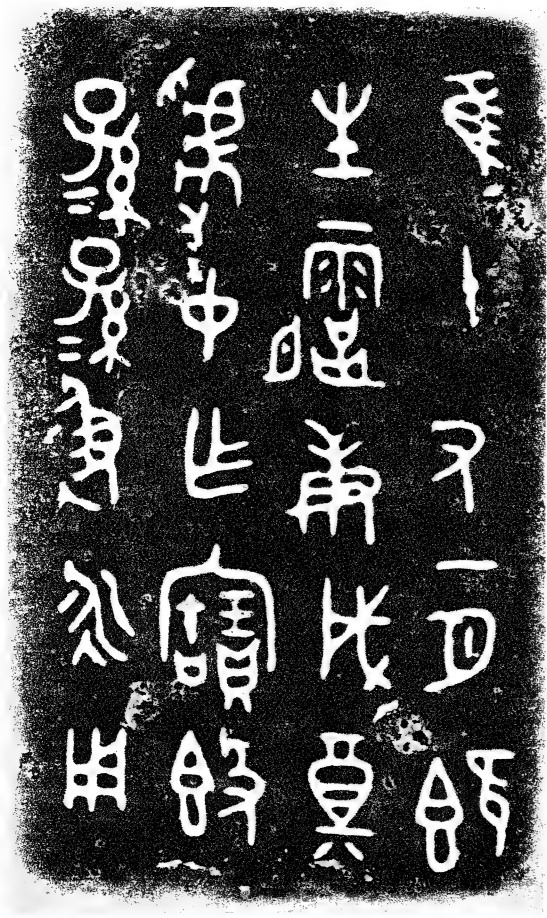 隹十又一月既
生霸庚戌奠
虢中乍寶𣪘
孫=孫=彶永用